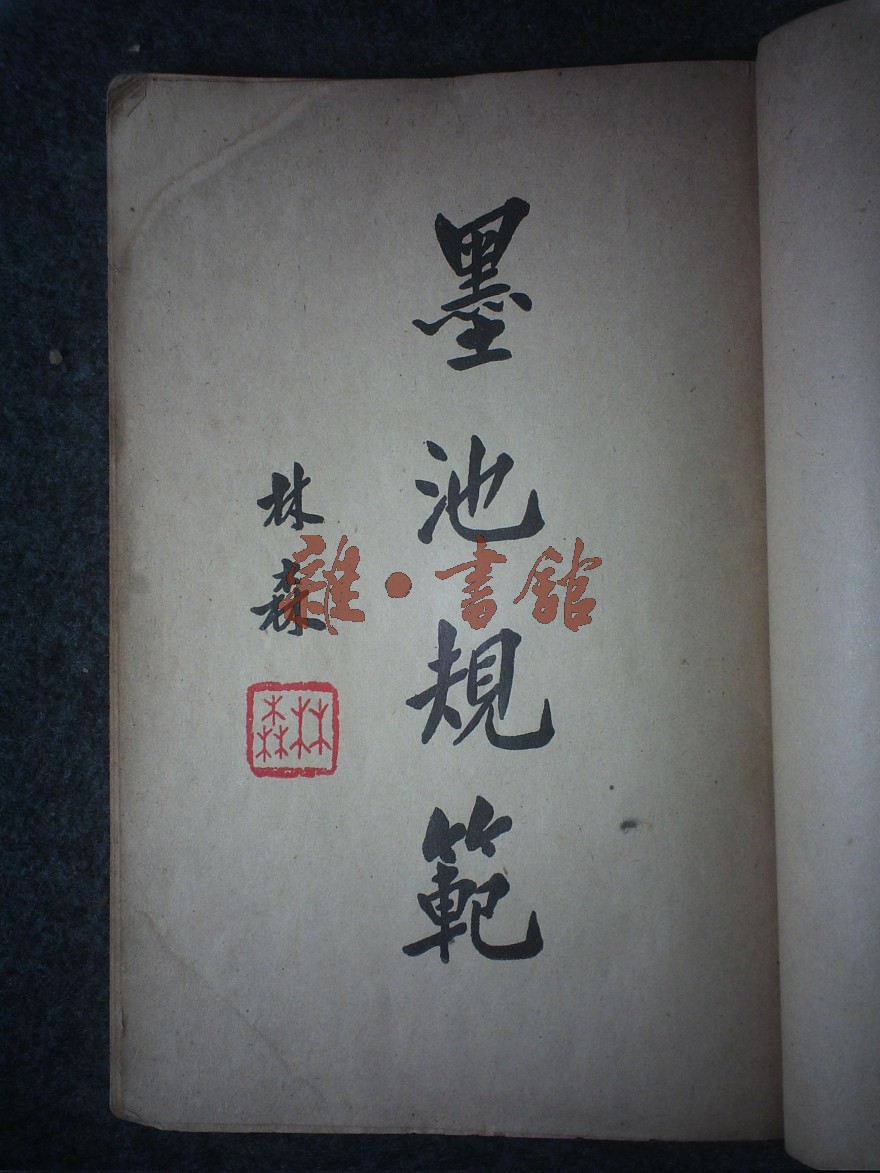 墨池規範
林森
林森
雜·書館